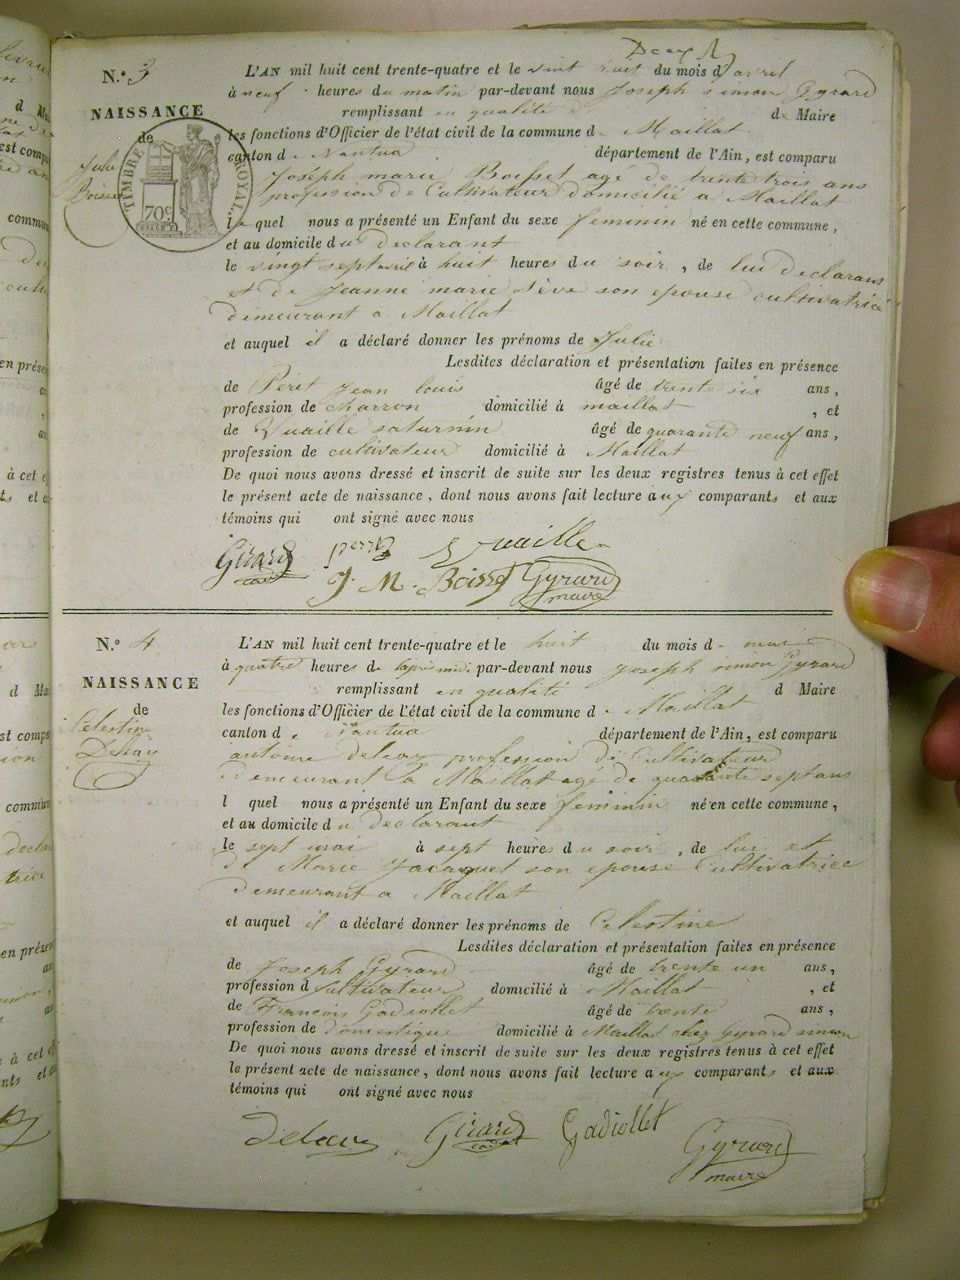 N.º 3
NAISSANCE
de
Julie
TIMBRE ROYAL
70c
L'AN mil huit cent trente-quatre et le vint huit du mois d'avril
à neuf heures du matin par-devant nous Joseph simon Gyrard
remplissant en qualité de Maire
les fonctions d'Officier de l'état civil de la commune d Maillat
canton de Nantua département de l'Ain, est comparu
Joseph marie Boisset agé de trente trois ans
profession de Cultivateur domicilié a Maillat
le quel nous a présenté un Enfant du sexe feminin né en cette commune,
et au domicile du Declarant
le vingt sept avril à huit heures du soir, de lui Declarans
et de Jeanne marie Sève son epouse cultivatrice
Demeurant a Maillat
et auquel il a déclaré donner les prénoms de Julie
Lesdites déclaration et présentation faites en présence
de Jean louis âgé de trente six ans,
profession de charron domicilié à maillat, et
de Vuaille saturnin âgé de quarante neuf ans,
profession de cultivateur domicilié à Maillat
De quoi nous avons dressé et inscrit de suite sur les deux registres tenus à cet effet
le présent acte de naissance, dont nous avons fait lecture aux comparants et aux
témoins qui ont signé avec nous
Girard S Vuaille
J. M. Boisset Gyrard
maire
N.º 4
NAISSANCE
de
Celestine
Delay
L'AN mil huit cent trente-quatre et le huit du mois de mai
à quatre heures de par-devant nous Joseph simon Gyrard
remplissant en qualité d Maire
les fonctions d'Officier de l'état civil de la commune d Maillat
canton d Nantua département de l'Ain, est comparu
antoine delay profession de Cultivateur
Demeurant a Maillat agé de quarante sept ans
l quel nous a présenté un Enfant du sexe feminin né en cette commune,
et au domicile du declarant
le sept mai à sept heures du soir, de lui et
de Marie Jacquet son epouse Cultivatrice
demeurant a Maillat
et auquel il a déclaré donner les prénoms de Celestine
Lesdites déclaration et présentation faites en présence
de Joseph Gyrard âgé de trente un ans,
profession d Cultivateur domicilié à Maillat, et
de François Gadiollet âgé de trente ans,
profession de Domestique domicilié à Maillat chez Gyrard simon
De quoi nous avons dressé et inscrit de suite sur les deux registres tenus à cet effet
le présent acte de naissance, dont nous avons fait lecture aux comparants et aux
témoins qui ont signé avec nous
Girard Gadiollet Gyrard
maire